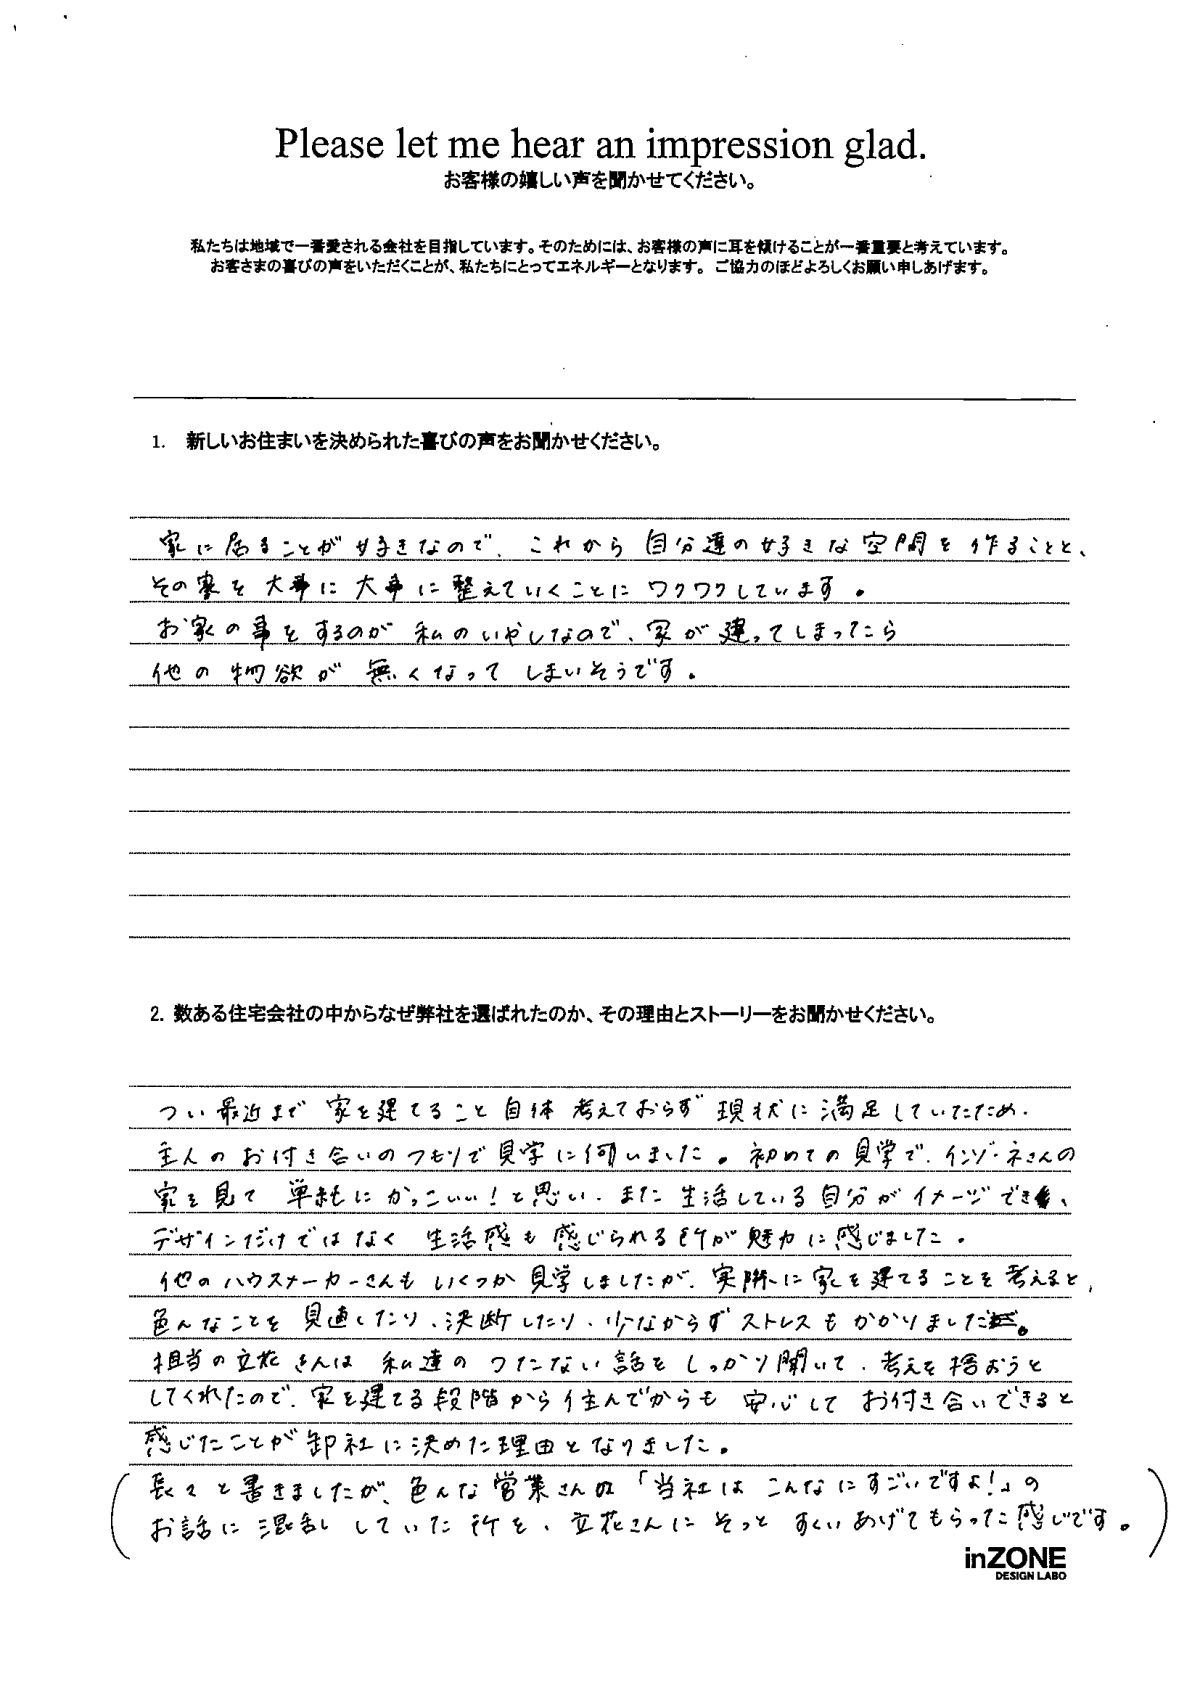 Please let me hear an impression glad.
お客様の嬉しい声を聞かせてください。
私たちは地域で一番愛される会社を目指しています。そのためには、お客様の声に耳を傾けることが一番重要と考えています。
お客さまの喜びの声をいただくことが、私たちにとってエネルギーとなります。ご協力のほどよろしくお願い申しあげます。
1. 新しいお住まいを決められた喜びの声をお聞かせください。
家に居ることが好きなので、これから自分達の好きな空間を作ることと、
その家を大事に大事に整えていくことにワクワクしています。
お家の事をするのが私のいやしなので、家が建ってしまったら
他の物欲が無くなってしまいそうです。
2. 数ある住宅会社の中からなぜ弊社を選ばれたのか、その理由とストーリーをお聞かせください。
つい最近まで家を建てること自体考えておらず現状に満足していたため、
主人のお付き合いのつもりで見学に伺いました。初めての見学で、インゾーネさんの
家を見て単純にかっこいい!と思い、また生活している自分がイメージでき、
デザインだけではなく生活感も感じられる所が魅力に感じました。
他のハウスメーカーさんもいくつか見学しましたが、実際に家を建てることを考えると、
色んなことを見直したり、決断したり、少なからずストレスもかかりました。
担当の立花さんは私達のつたない話をしっかり聞いて、考えを捨おうと
してくれたので、家を建てる段階から住んでからも安心してお付き合いできると
感じたことが御社に決めた理由となりました。
(長々と書きましたが、色んな営業さんの「当社はこんなにすごいですよ!」の
お話に混乱していた所を、立花さんにそっとすくいあげてもらった感じです。)
inZONE
DESIGN LABO